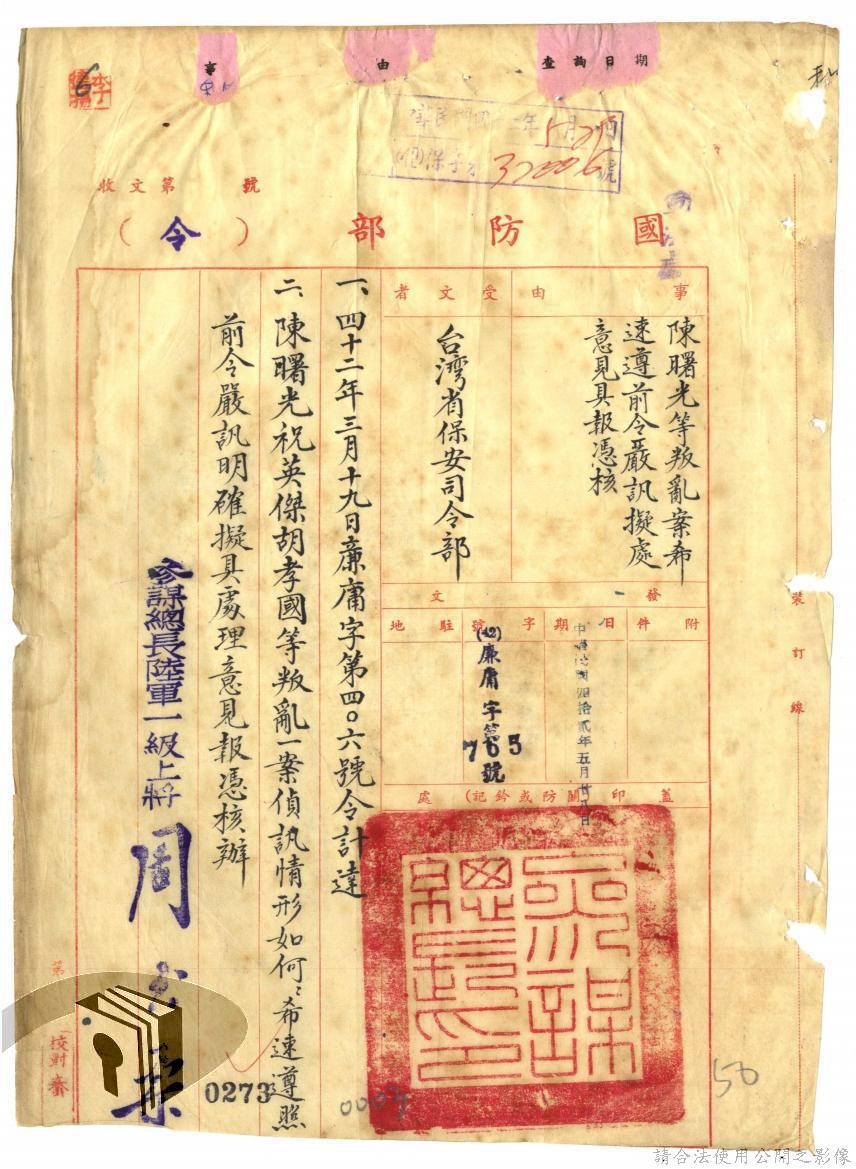 事由
查詢日期
6
年5月29
保
32006號
收文第 號
國防部（令）
事由
陳曙光等叛亂案希
速遵前令嚴訊擬處
意見具報憑核
受文者
台湾省保安司令部
發文
附件
日期
中華民國四拾貳年五月廿八日
字號
(42)廉庸字第
765號
駐地
蓋印(關防或鈐記)處
一、四十二年三月十九日廉庸字第四〇六號令計達
二、陳曙光祝英傑胡孝國等叛亂一案偵訊情形如何希速遵照
前令嚴訊明確擬具處理意見報憑核辦
參謀總長陸軍一級上將周
參謀總長印
裝訂線
第
校對
0273
50
請合法使用公開之影像